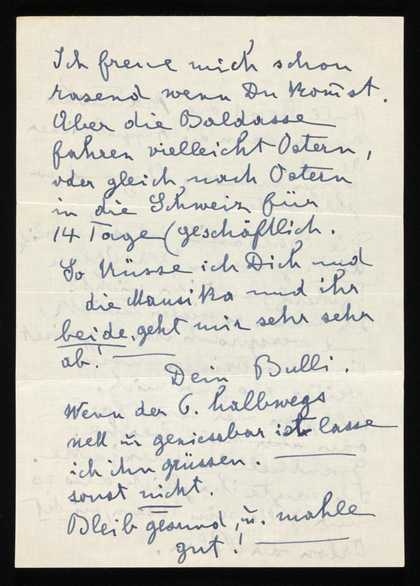 Ich freue mich schon
rasend wenn Du kom̄st.
Aber die Baldasse
fahren vielleicht Ostern,
oder gleich nach Ostern
in die Schweiz für
14 Tage (geschäftlich.
So küsse ich Dich und
die Mausika und ihr
beide, geht mir sehr sehr
ab!
Dein Bulli.
Wenn der G. halbwegs
nett ū geniessbar ist lasse
ich ihn grüssen.
sonst nicht.
Bleib gesund, ū. mahle
gut!